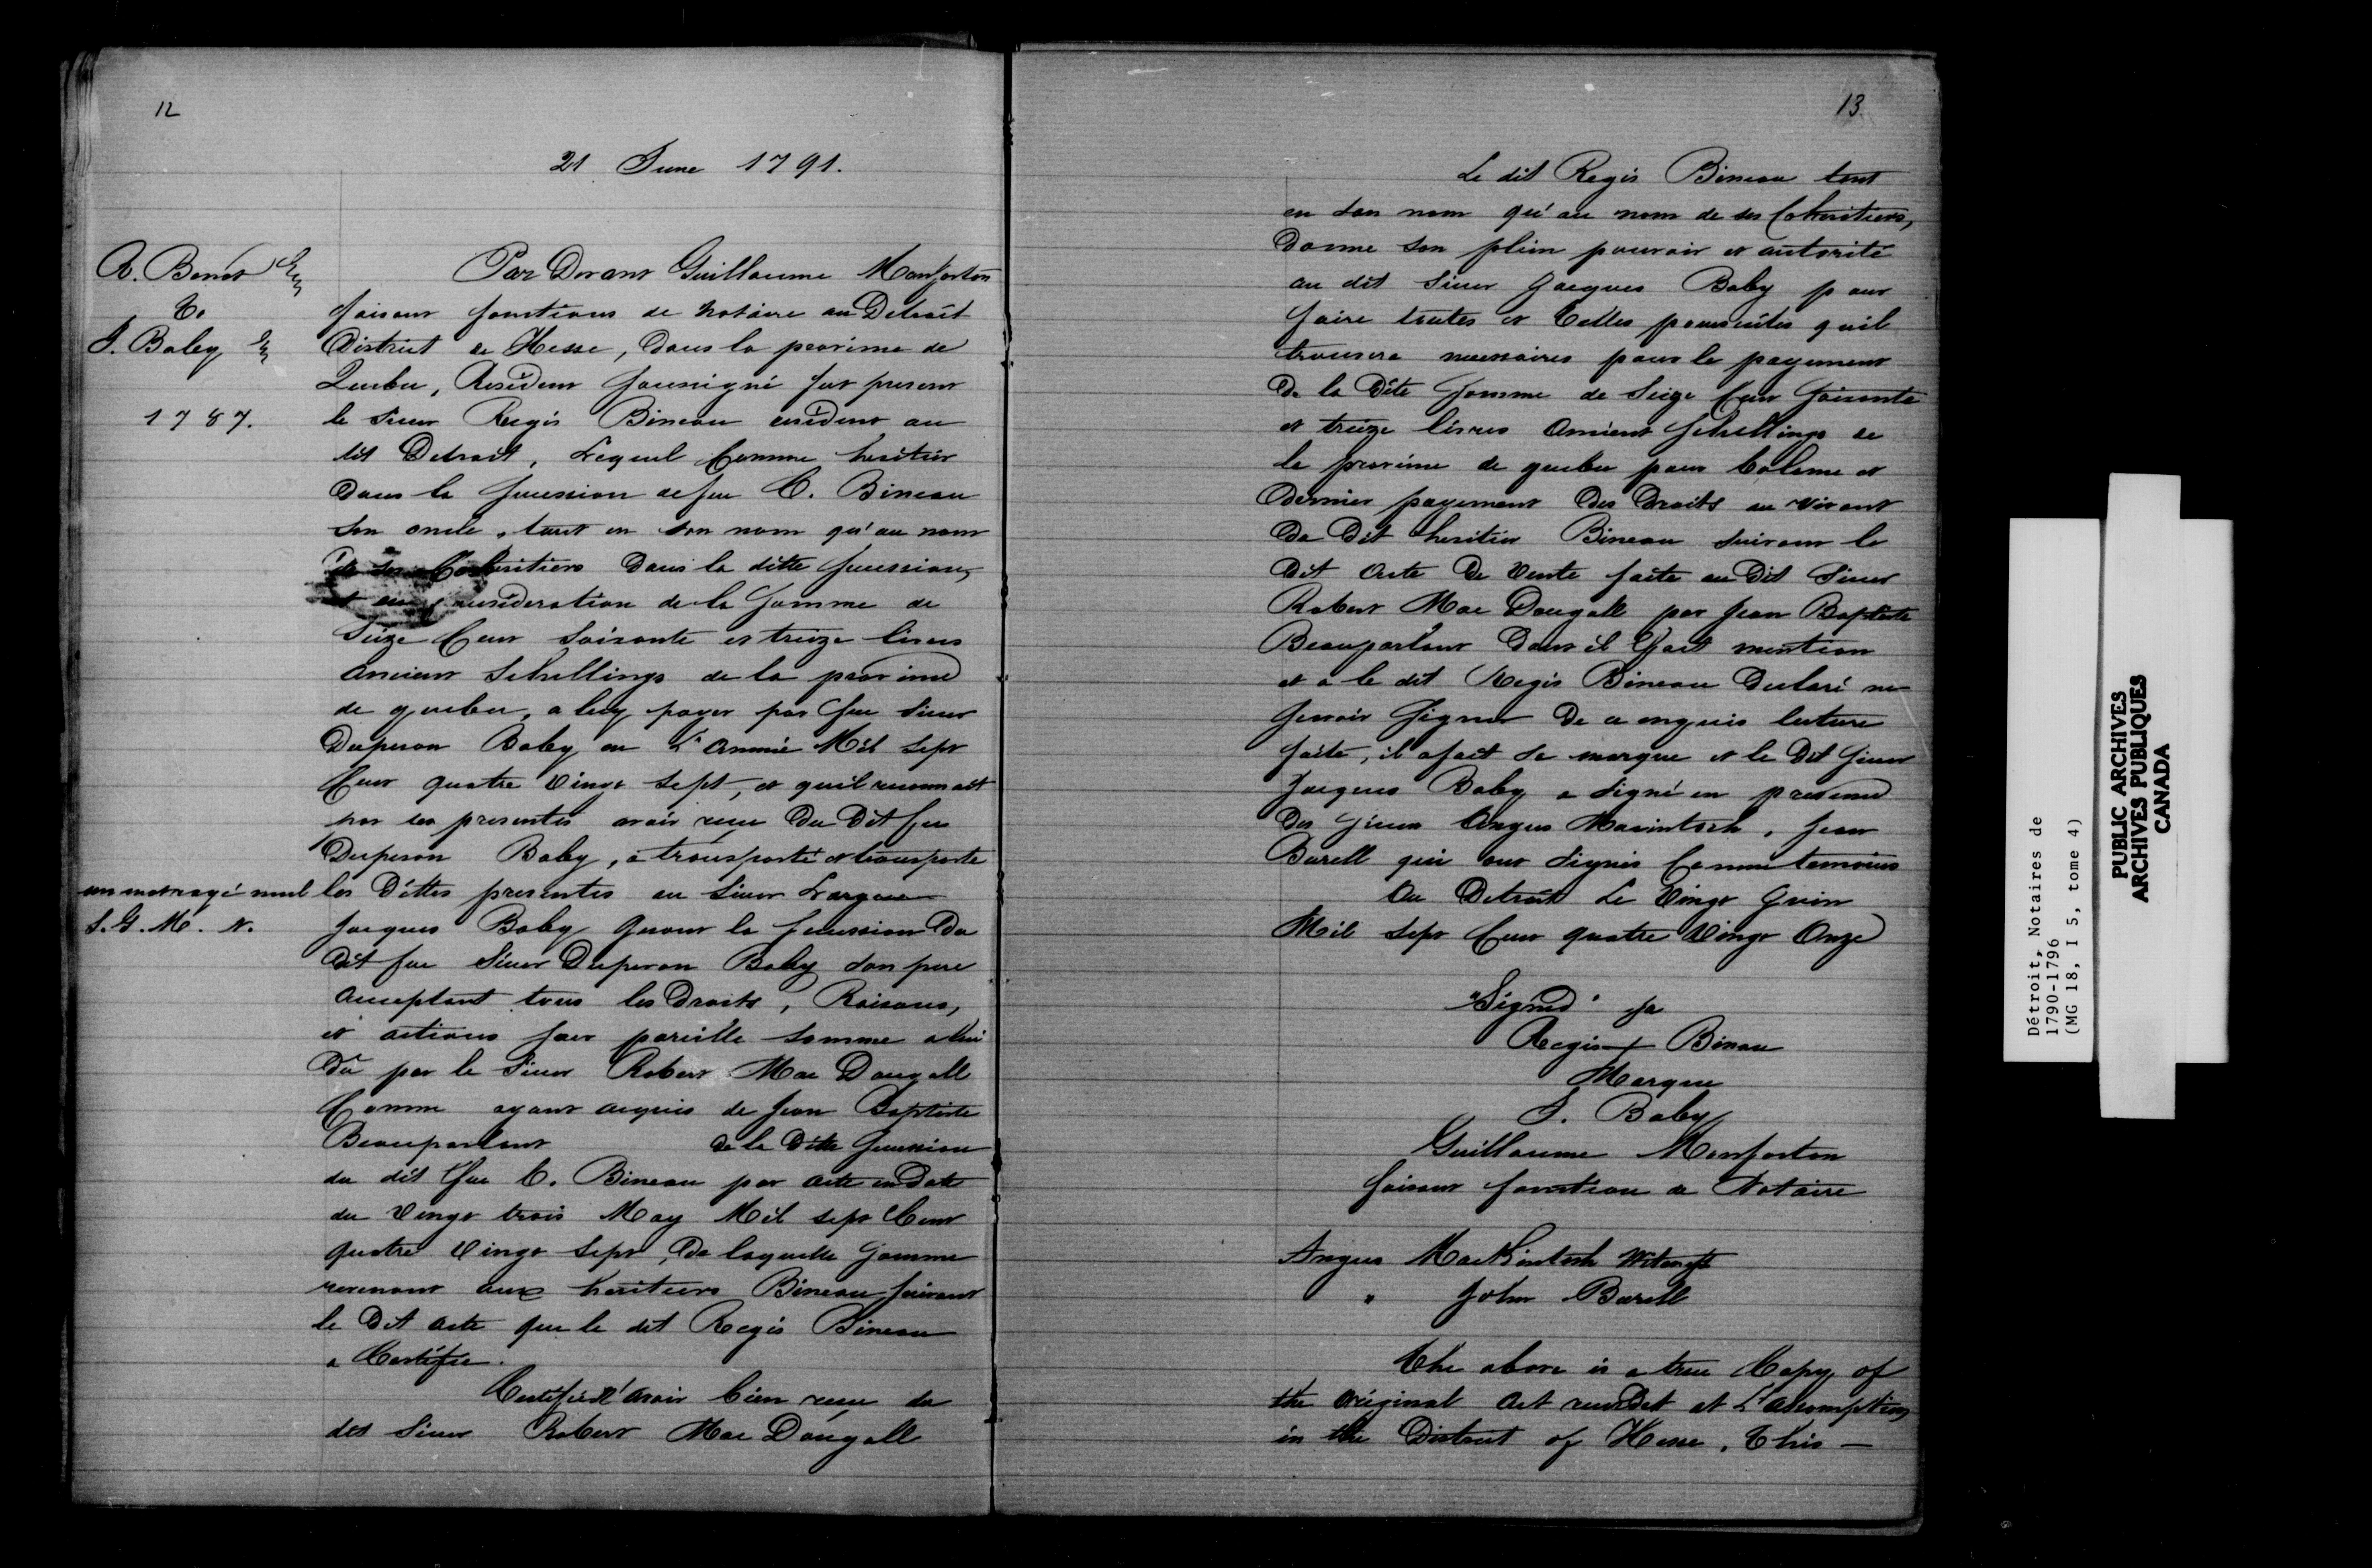 12
21 June 1791.
R. Benot
To
J. Baby
1787.
Par Devant Guillaume Monforton
faisant fonctions de Notaire au Detroit
District de Hesse, dans la province de
Quebec, Resident soussigné fut present
le Sieur Regis Bineau resident au
dit Detroit, Lequel Comme heritier
dans la succession de feu C. Bineau
son oncle, tant en son nom qu'au nom
de ses Coheritiers dans la ditte succession,
et en consideration de la Somme de
Seize Cent Soixante et treize livres
ancient Schellings de la province
de quebec, a luy payer par feu Sieur
Duperon Baby en L'année Mil Sept
Cent quatre Vingt Sept, et quil reconnait
par les presentes avoir recue du Dit feu
Duperon Baby, a transporté et transporte
un mot rayé nul
S. G. M. N.
les Dittes presentes au Sieur
Jacques Baby Gerant la Succession du
dit feu Sieur Duperon Baby son pere
acceptant tous les Droits, Raisons,
et actions pour pareille somme a lui
Dû par le Sieur Robert Mac Dougall
Comme ayant acquis de Jean Baptiste
Beauparlant de la Ditte Succession
du dit feu C. Bineau par acte en Date
du Vingt trois May Mil sept Cent
quatre Vingt Sept, De laquelle Somme
revenant aux heritiers Bineau suivant
le Dit acte que le dit Regis Bineau
a Certifie.
Certifie d'avoir bien recue du
dit Sieur Robert Mac Dougall
13
Le dit Regis Bineau tant
en son nom qu'au nom de ses Coheritiers,
Donne son plein pouvoir et autorité
au dit Sieur Jacques Baby pour
faire toutes et telles poursuites quil
trouvera necessaires pour le payement
De la Dite Somme de Seize Cent Soixante
et treize livres Ancient Schellings de
la province de quebec pour balance et
dernier payement Des Droits
Du Dit heritier Bineau suivant le
Dit Acte De Vente faite au Dit Sieur
Robert Mac Dougall par Jean Baptiste
Beauparlant Dont il fait mention
et a le dit Regis Bineau Declaré ne
Sçavoir Signer De ce enquis lecture
faite, il a fait sa marque et le Dit Sieur
Jacques Baby a signé en presence
Des Sieurs Angus Macintosh, Jean
Barell qui ont Signés Comme temoins
Au Detroit Le Vingt Juin
Mil Sept Cent quatre Vingt Onze
"Signed" sa
Regis + Binau
Marque
J. Baby
Guillaume Monforton
faisant fonction de Notaire
Angus MacKintosh Witness
" John Barell
The above is a true Copy of
the original Act recorded at L'assomption
in the District of Hesse, This —
Détroit, Notaires de
1790-1796
(MG 18, I 5, tome 4)
PUBLIC ARCHIVES
ARCHIVES PUBLIQUES
CANADA